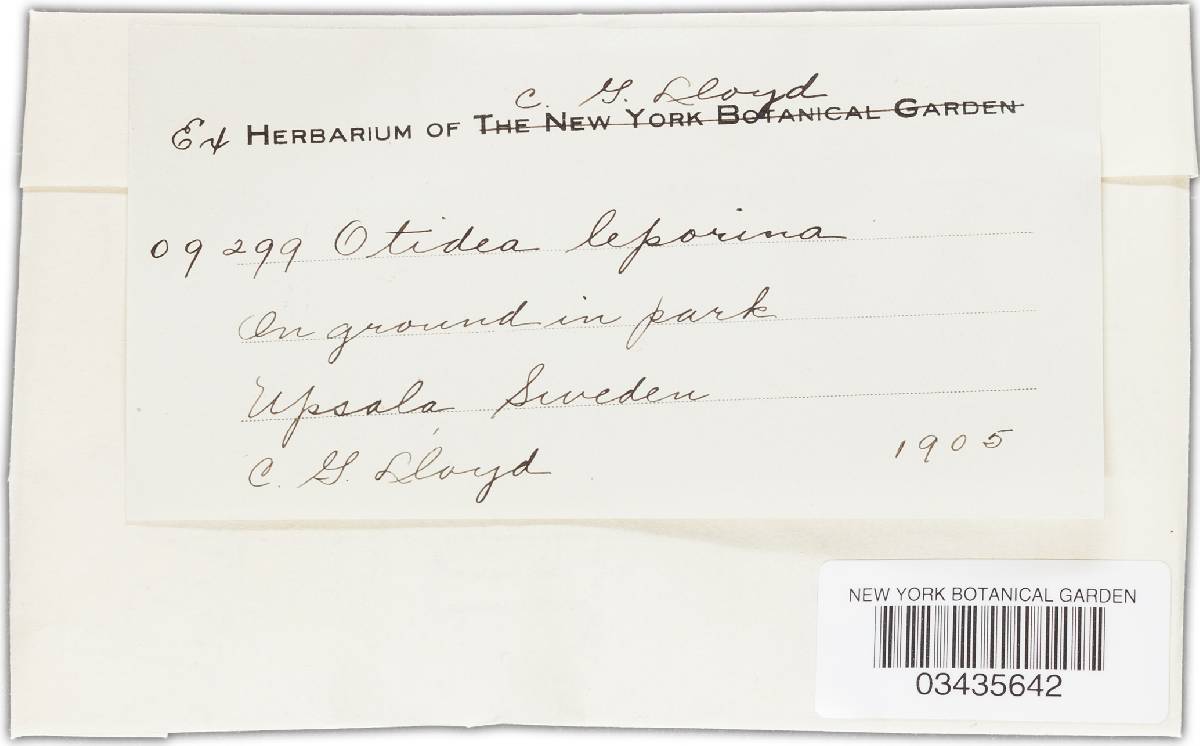 C. G. Lloyd
Ex HERBARIUM OF THE NEW YORK BOTANICAL GARDEN
09299 Otidea leporina
On ground in park
Upsala, Sweden
C. G. Lloyd 1905
NEW YORK BOTANICAL GARDEN
03435642